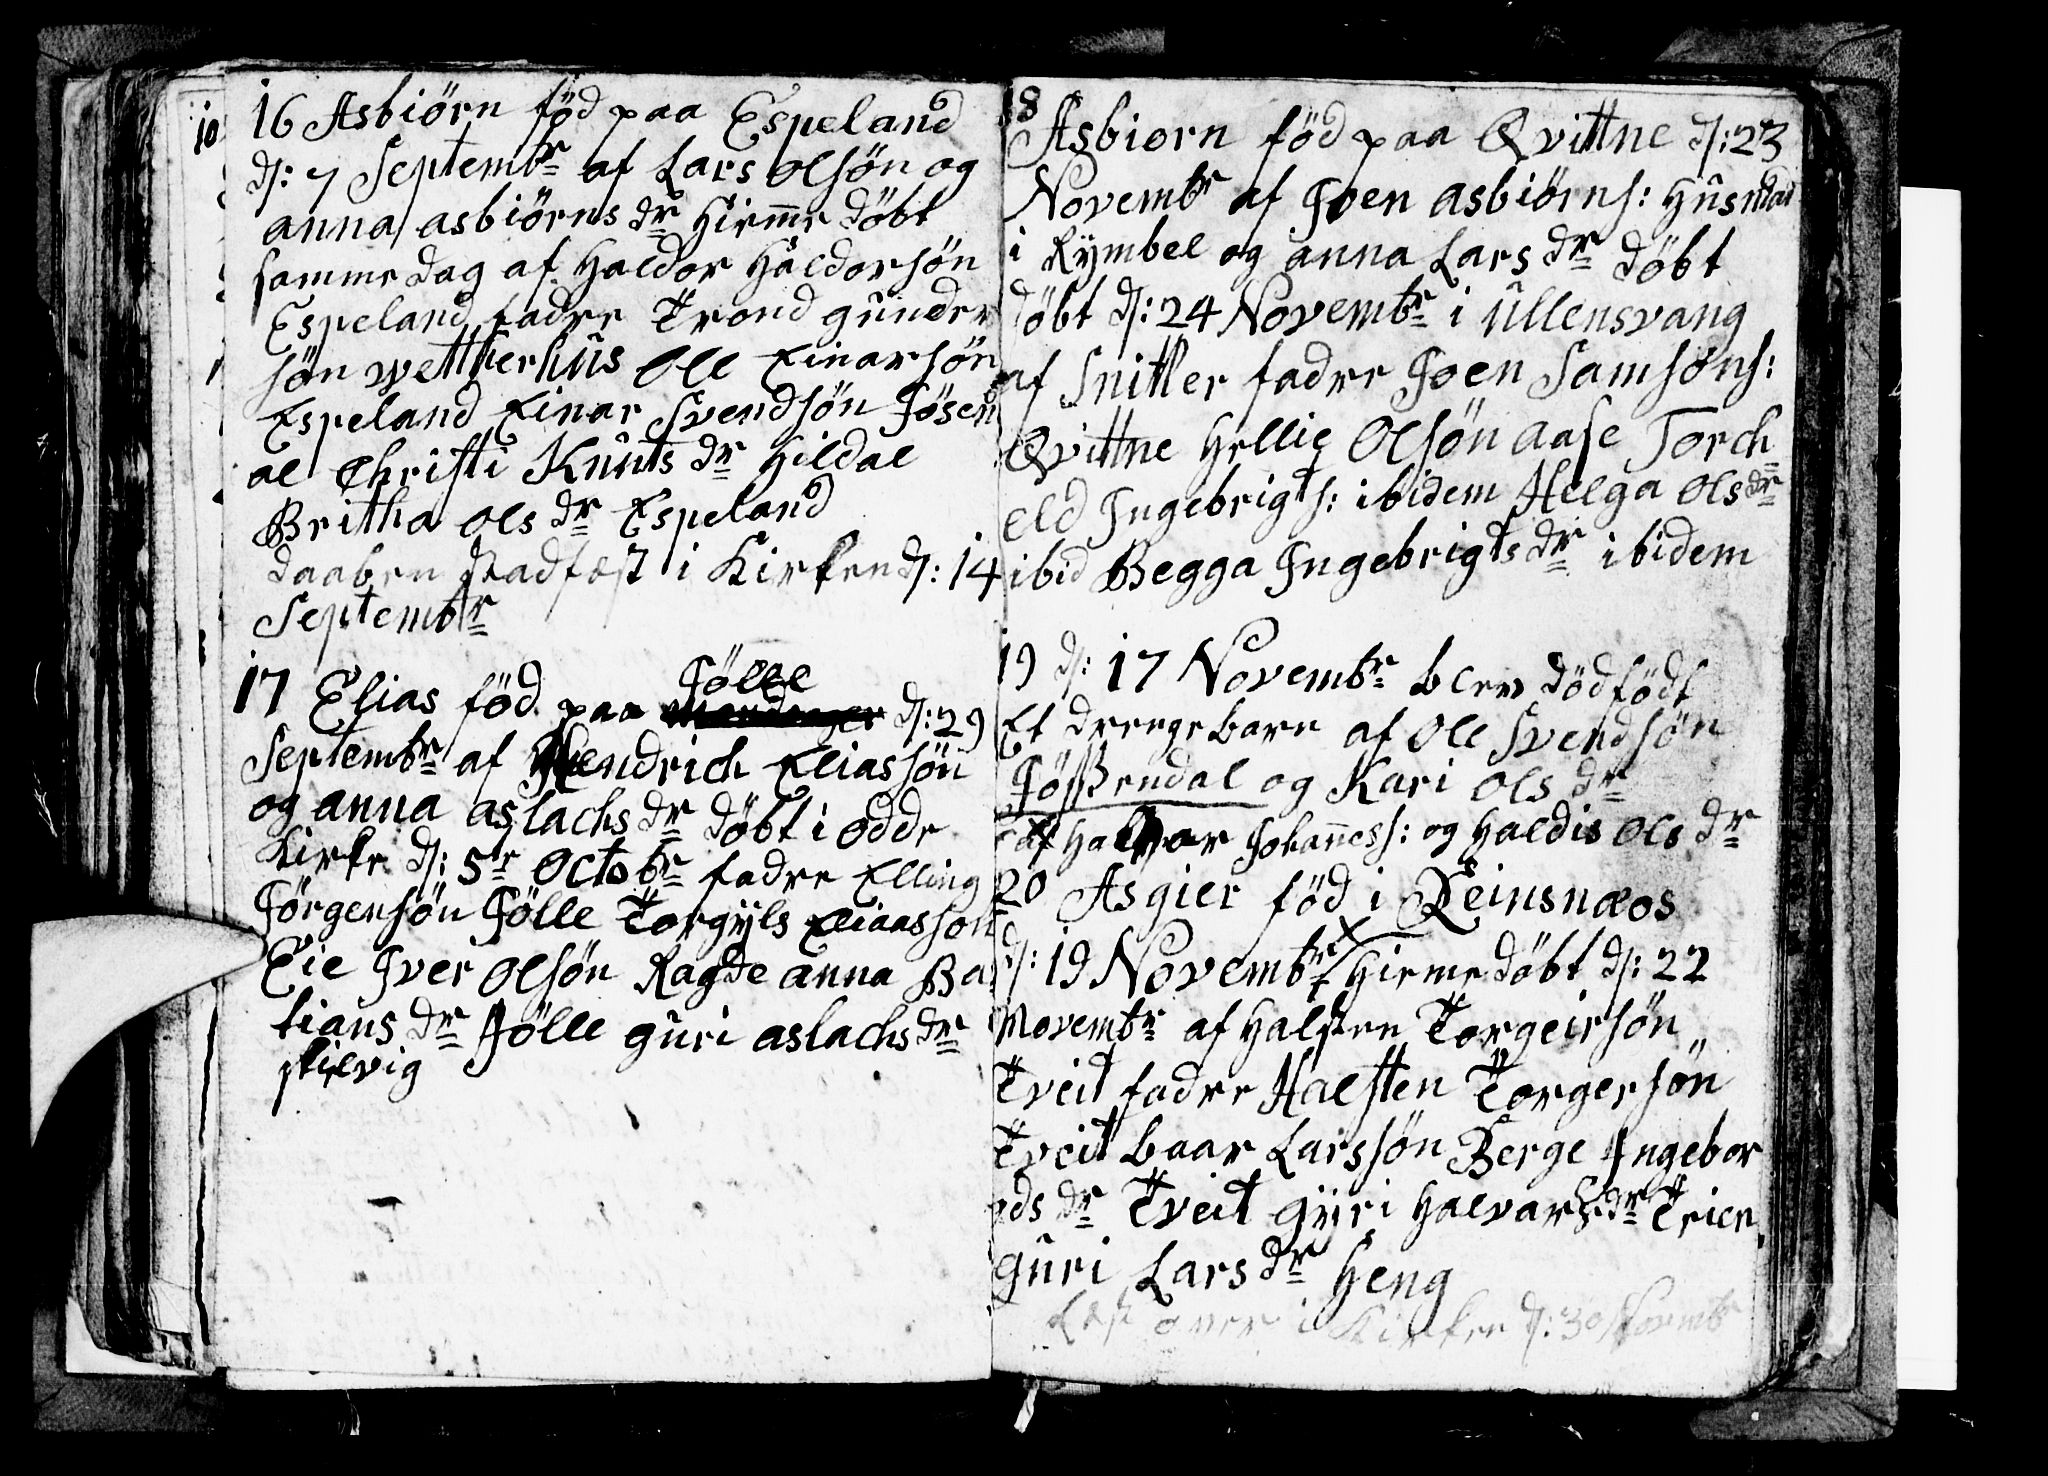 10
16 Asbiörn föd paa Espeland
d: 7 Septembr af Lars Olsön og
anna asbiörns dr hiemme döbt
samme dag af Haldor Haldorsön
Espeland fadre Trond gunder
sön wettherhus Ole Einarsön
Espeland Einar Svendsön Jösen
al Christi Knuts dr Hildal
Britha Ols dr Espeland
daaben stadfæst i Kirken d: 14
Septembr
Jölle
17 Elias föd paa d: 29
Septembr af Hendrich Eliassön
og anna aslachs dr döbt i Odde
Kirke d: 5te Octobr fadre Elling
Jörgensön Jölle Torgyls Eliaassön
Eie Iver Olsön Ragde anna Ba
tians dr Jölle guri aslachs dr
skielvig
18
Asbiorn föd paa Qvittne d: 23
Novembr af Joen asbiörns: Husmand
i Rymbel og anna Lars dr döbt
döbt d: 24 Novembr i Ullensvang
af Snitler fadre Joen Samsöns:
Qvittne Hellie Olsön Aase Torch
eld Ingebrigts: ibidem Helga Ols dr
ibid Begga Ingebrigts dr ibidem
19 d: 17 Novembr blev dödfödt
Et drengebarn af Ole Svendsön
Jössendal og Kari Ols dr
af Halvor Johanness: og Haldis Ols dr
20 Asgier föd i Reinsnæos
d: 19 Novembr hieme döbt d: 22
Novembr af Halsten Torgeirsön
Tveit fadre Halsten Torgersön
Tveit baar Larssön Berge Ingebor
gds dr Tveit gyri Halvars dr Trien
guri Lars dr Heng
Læst over i Kirken d: 30 Novembr